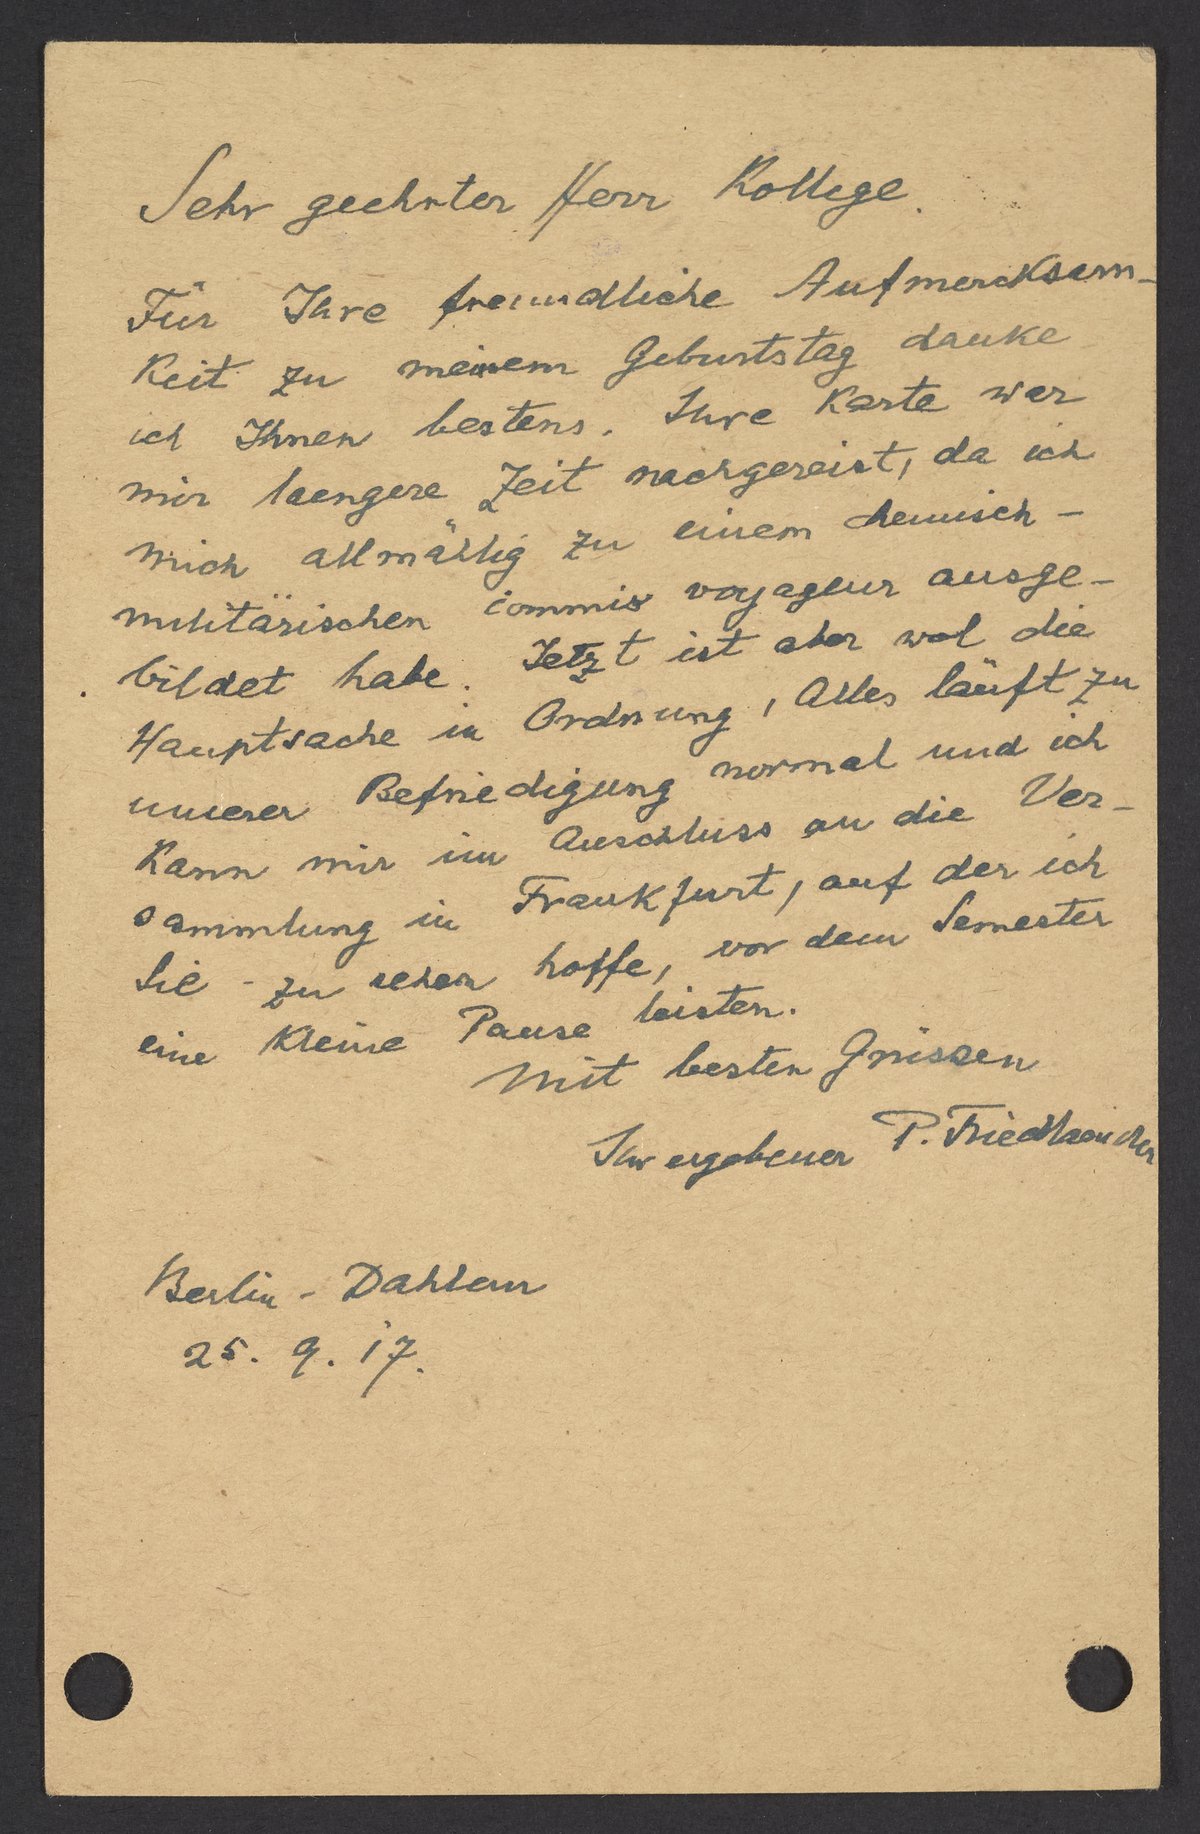 Sehr geehrter Herr Kollege.
Für Ihre freundliche Aufmercksam-
keit zu meinem Geburtstag danke
ich Ihnen bestens. Ihre Karte war
mir laengere Zeit nachgereist, da ich
mich allmählig zu einem chemisch-
militärischen commis voyageur ausge-
bildet habe. Jetzt ist aber wol die
Hauptsache in Ordnung, Alles läuft zu
unserer Befriedigung normal und ich
kann mir im Anschluss an die Ver-
sammlung in Frankfurt, auf der ich
Sie zu sehen hoffe, vor dem Semester
eine kleine Pause leisten.
Mit besten Grüssen
Ihr ergebener P. Friedlaender
Berlin-Dahlem
25. 9. 17.